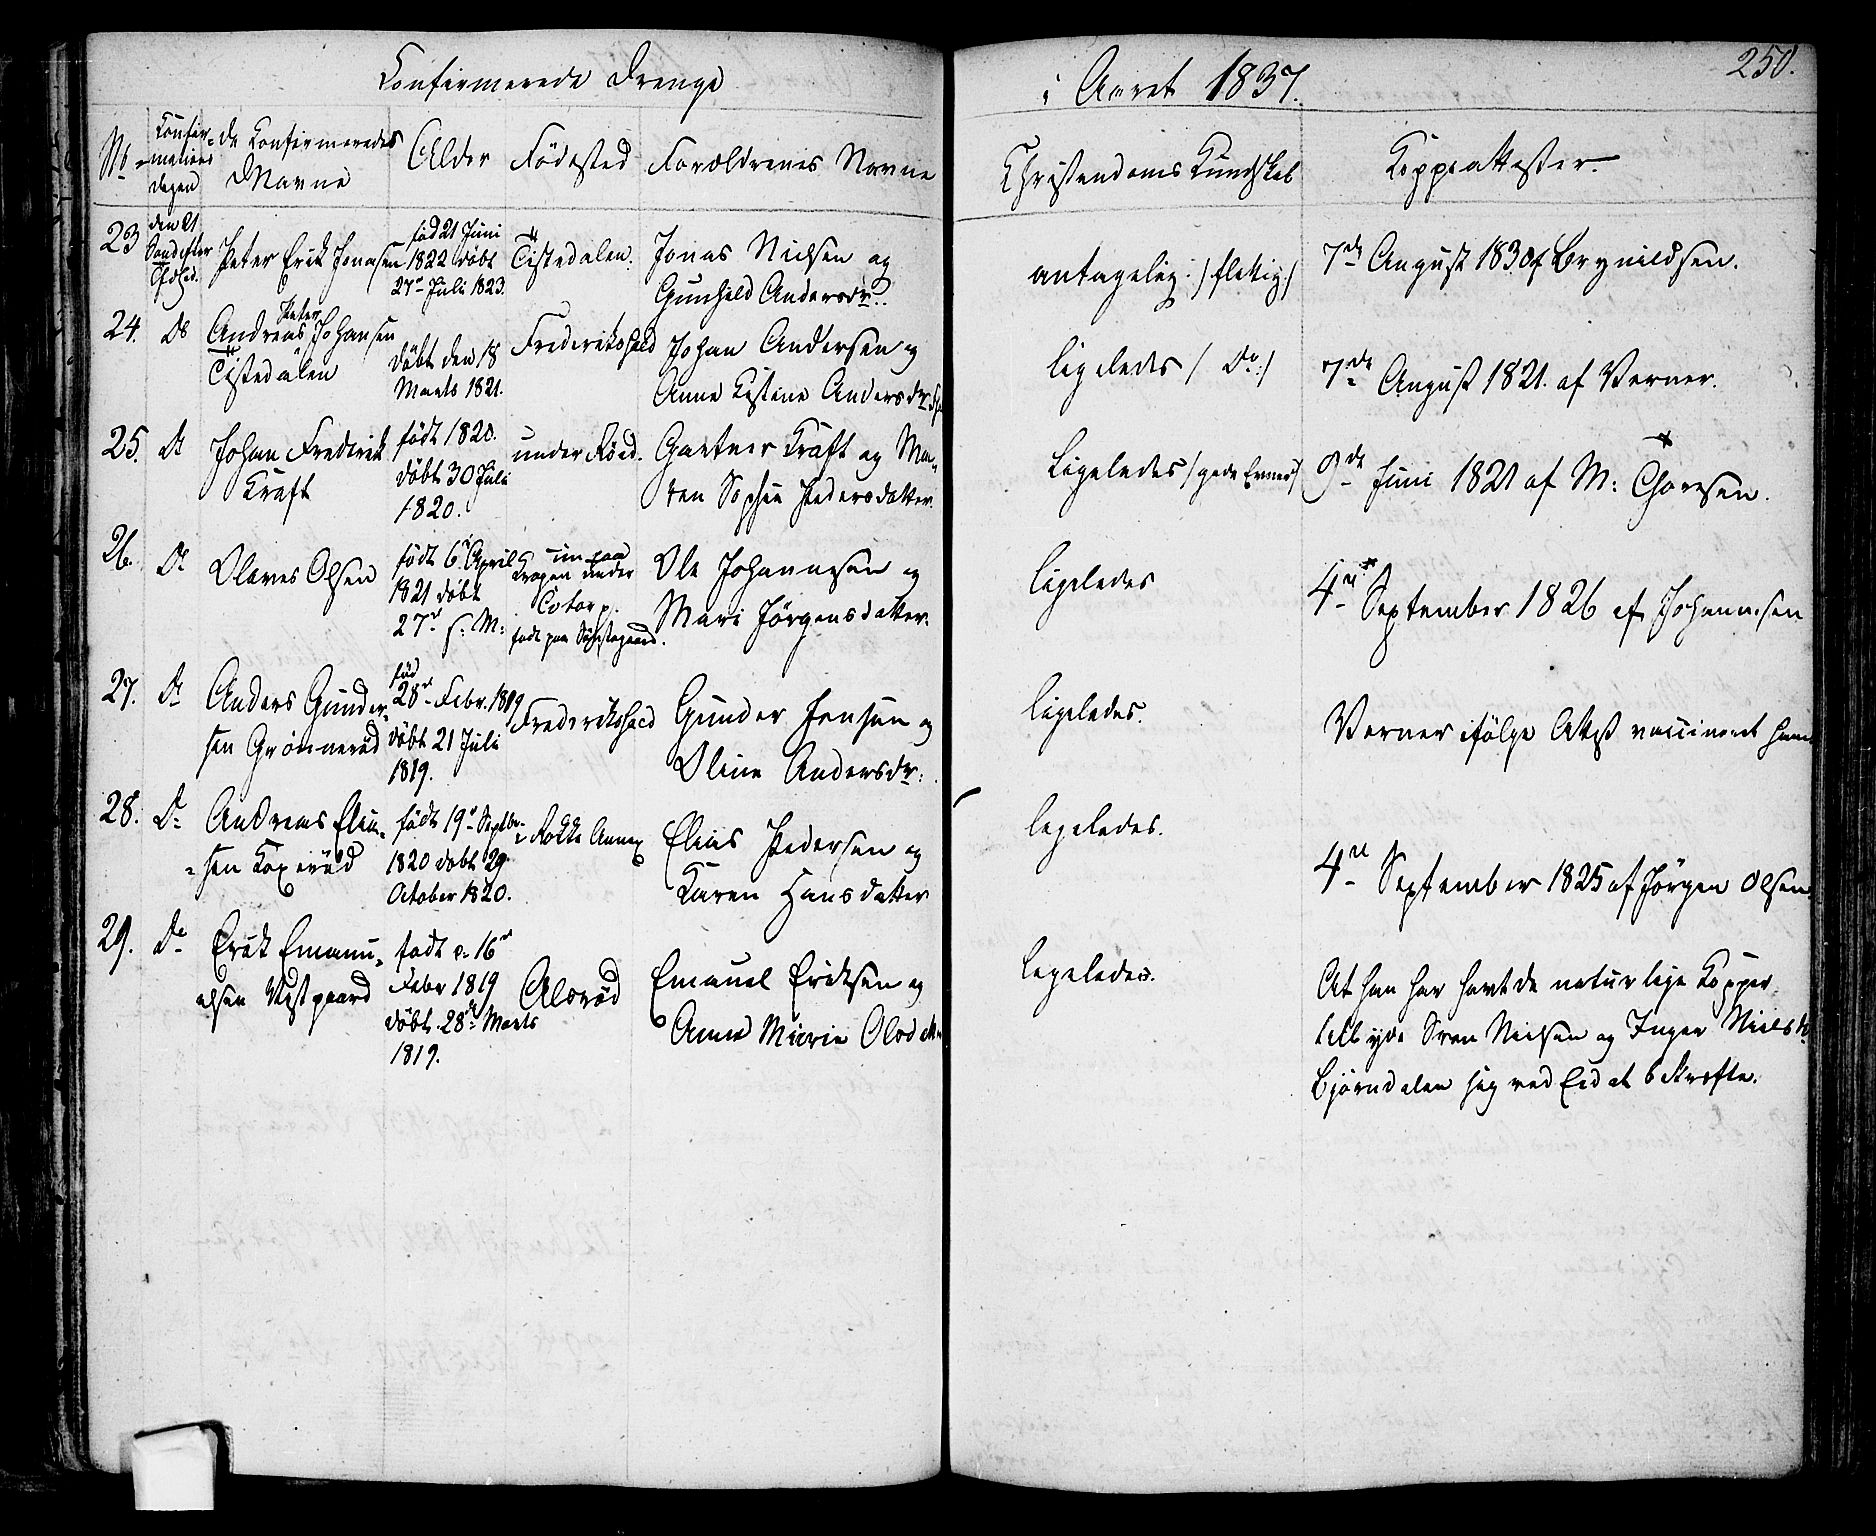 Confirmerede Drenge
i Aaret 1837.
250.
No
Confir-
mations
dagen
De Confirmeredes
Navne
Alder
Födested
Forældrenes Navne
Christendoms Kundskab
Koppeattester.
23
den 21
Sönd. efter
Peter Erik Jonasen
fød 21 Juni
1822 döbt
27de Juli 1823.
Tistedalen.
Jonas Nielsen og
Gunhild Andersdr.
antagelig /: flittig :/
7de August 1830 af Brynildsen.
24.
Do
Peter
Andreas Johansen
Tistedalen
döbt den 18
Marts 1821.
Frederikshald
Johan Andersen og
Anne Kistine Andersdr
ligeledes /: Do :/
7de August 1821. af Verner.
25.
Do
Johan Frederik
Kraft
födt 1820.
döbt 30 Juli
1820.
under Röed.
Gartner Kraft og Ma-
ren Sophie Pedersdatter.
Ligeledes / gode Evner /
9de Juni 1821 af M: Thoresen.
26.
Do
Olaves Olsen
födt 6 April
1821 döbt
27de s: M:
Kragen under
födt paa
Ole Johannesen og
Mari Jörgensdatter.
ligeledes
4de September 1826 af Johannesen
27.
Do
Anders Gunder-
sen Grönneröd
fød
28de Febr. 1819
döbt 21 Juli
1819.
Frederikshald
Gunder Jensen og
Oline Andersdr:
ligeledes.
Verner ifölge Attest vaccineret ham.
28.
Do
Andreas Elia-
sen Koxeröd
födt 19de Septbr
1820 döbt 29
October 1820.
Rokke Annex
Elias Pedersen og
Karen Hansdatter
ligeledes.
4de September 1825 af Jörgen Olsen.
29.
Do
Erik Emanu-
elsen Vestgaard
födt d. 16de
Febr 1819
döbt. 28de Marts
1819.
Aloröd
Emanuel Eriksen og
Anne Marie Olsdtr
ligeledes.
At han har havt de naturlige Kopper
tilbyde Sven Nielsen og Inger Nielsdr
Björndalen sig ved Eed at bekræfte.